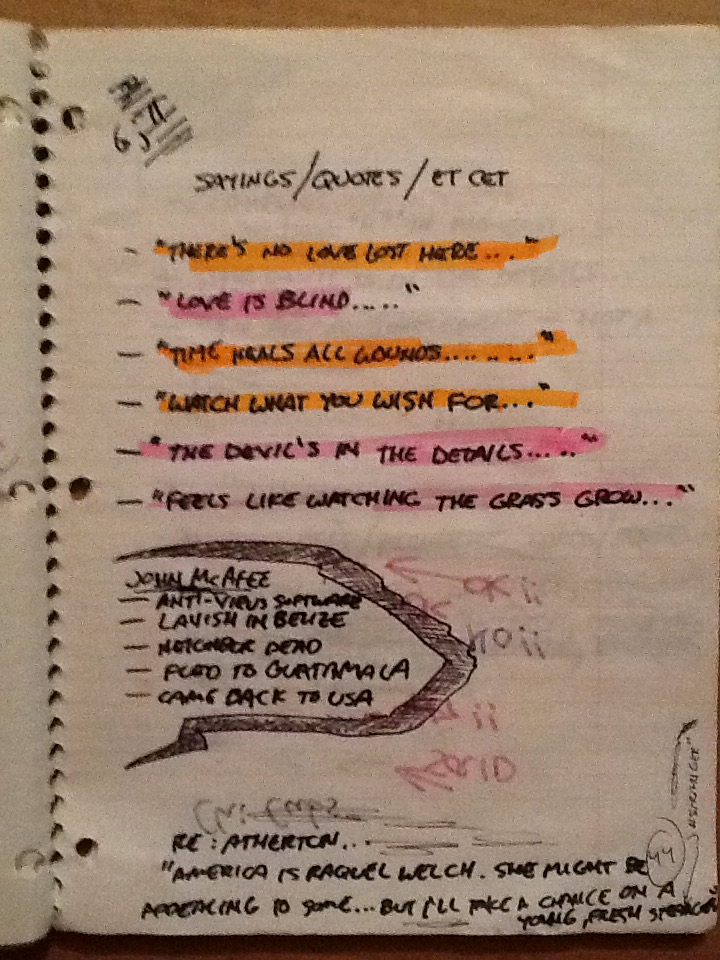 SAYINGS/QUOTES/ET CET
- "THERE'S NO LOVE LOST HERE..."
- "LOVE IS BLIND....."
- "TIME HEALS ALL WOUNDS........"
- "WATCH WHAT YOU WISH FOR..."
- "THE DEVIL'S IN THE DETAILS....."
- "FEELS LIKE WATCHING THE GRASS GROW..."
JOHN McAFEE
- ANTI-VIRUS SOFTWARE
- LAVISH IN BELIZE
- NEIGHBOR DEAD
- FLED TO GUATAMALA
- CAME BACK TO USA
RE: ATHERTON...
"AMERICA IS RAQUEL WELCH. SHE MIGHT BE
APPEALING TO SOME...BUT I'LL TAKE A CHANCE ON A
YOUNG, FRESH
44